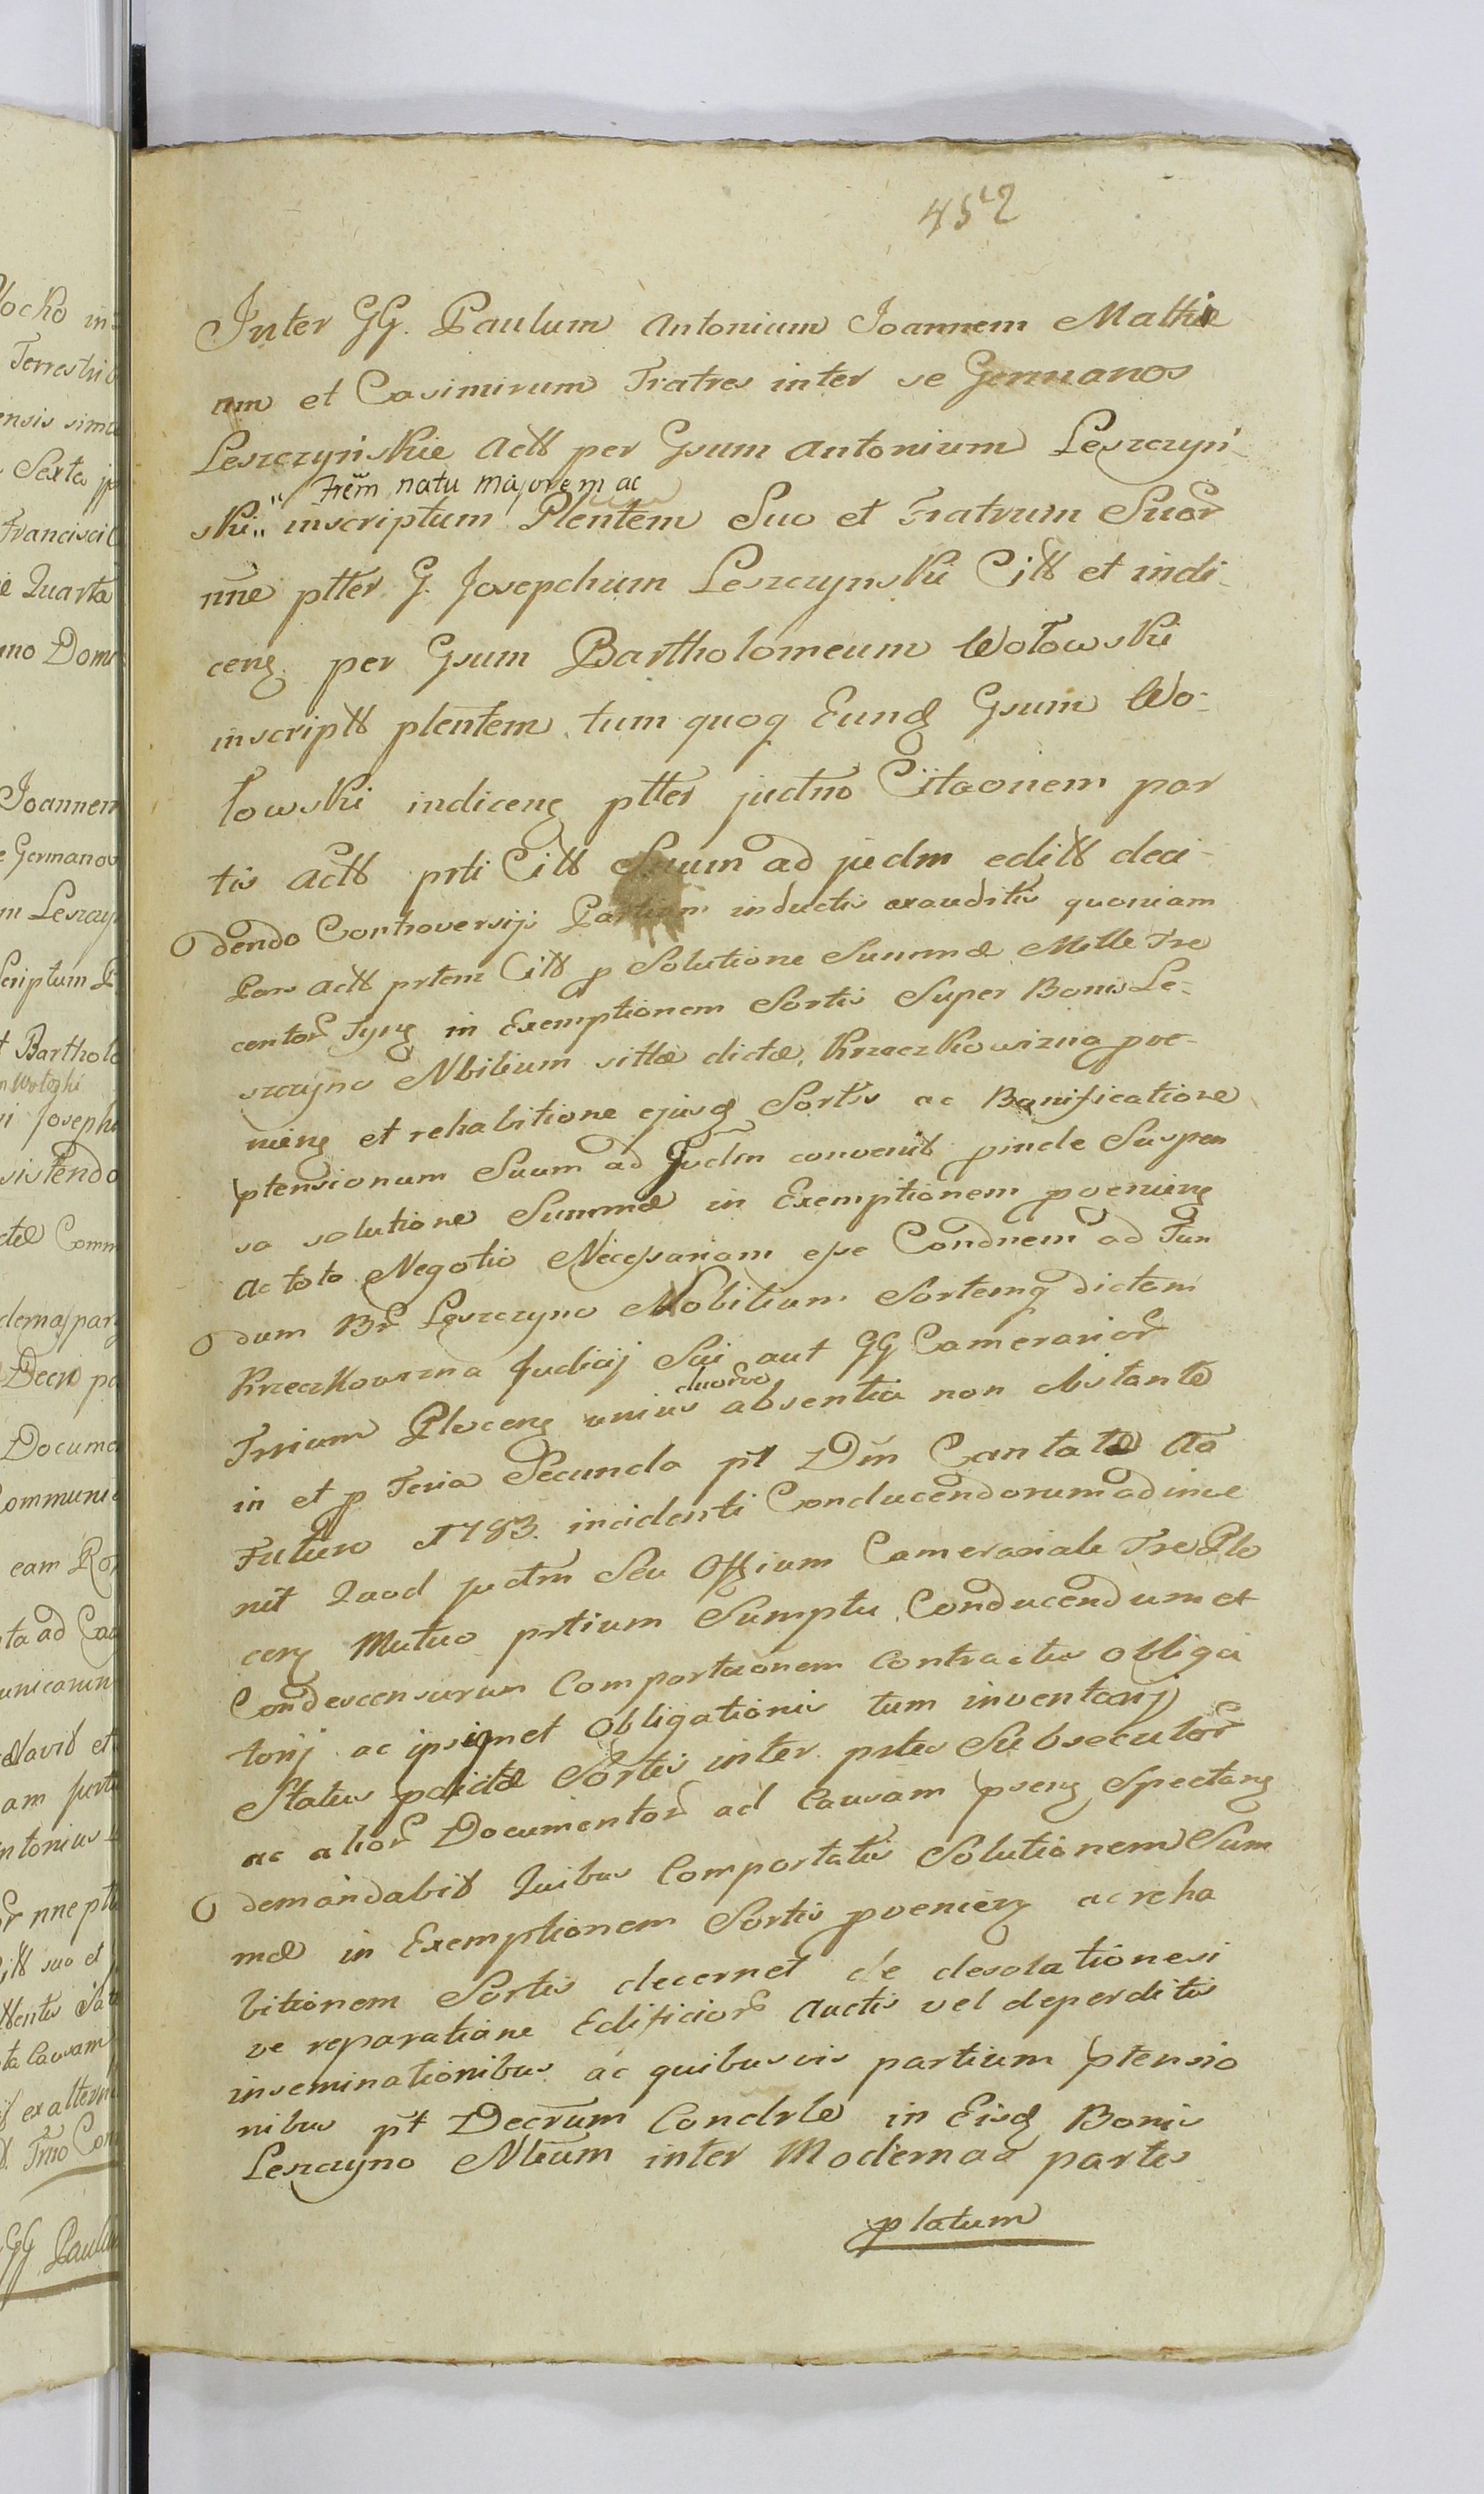 452
Inter GG. Paulum Antonium Joannem Mathi
um et Casimirum Fratres inter se Germanos
Leszczyńskie Actt per Gsum Antonium Leszczyń-
Frem natu Majorem ac
ski" inscriptum Plentem Suo et Fratrum Suor
nne ptter G. Josepchum Leszczynski Citt et indi-
ceng per Gsum Bartholomeum Wołowski
inscriptt plentem tum quoq Eundg Gsum Wo-
łowski indiceng ptter juctno Citaonem par
tis Actt prti Citt Suum ad judm editt deci-
dendo Controversijs Partium inductis exauditis quoniam
Pars Actt prtem Citt p Solutione Summæ Mille Tre
centor Tynf in Exemptionem Sortis Super Bonis Le-
szczyno Nbilium sittæ dictæ Krzeczkowizna pve-
nieng et rehabitione ejusq Sortis ac Bonificatione
ptensionum Suum ad Judm convenit pinde Suspen
sa solutione Summæ in Exemptionem pvenieng
ac toto Negotio Necessariam esse Condnem ad Fun
dum Br Leszczyno Nobilium Sortemq dictam
Krzeczkowizna Judicij Sui aut GG Camerarior
duorvo
Trrium Ploceng unius absentia non obstante
in et p Feria Secunda pt Dm Cantate Ao
Futuro 1783. incidenti Conducendorum adinve
nit Quod juctm Seu Offium Camerariale Tre Plo
ceng Mutuo prtium Sumptu Conducendum et
Condescensurum Comportaonem Contractus obliga
torij ac ipsiqmet Obligationis tum inventarij
Status pdictæ Sortis inter prtes Subsecutor
ac alior Documentor ad Causam pseng Spectang
demandabit Quibus Comportatis Solutionem Sum
mæ in Exemptionem Sortis pvenieng ac reha
bitionem Sortis decernet de desolatione si
ve reparatione Edificior Auctis vel deperditis
inseminationibus ac quibusvis partium ptensio
nibus pt Decrum Condrle in Eisq Bonis
Leszczyno Nlium inter Modernas partes
platum